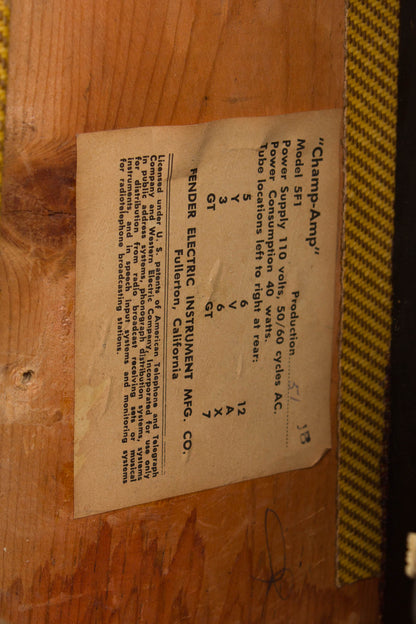 "Champ-Amp" Production
Model 5F1
Power Supply 110 volts, 50/60 cycles AC.
Power Consumption 40 watts.
Tube locations left to right at rear:
5 6 12
Y V A
3 6 X
GT GT 7
FENDER ELECTRIC INSTRUMENT MFG. CO.
Fullerton, California
Licensed under U. S. patents of American Telephone and Telegraph
Company and Western Electric Company, Incorporated for use only
in public address systems, phonograph distribution systems, systems
for distribution from radio broadcast receiving sets or musical
instruments, and in speech input systems and monitoring systems
for radiotelephone broadcasting stations.